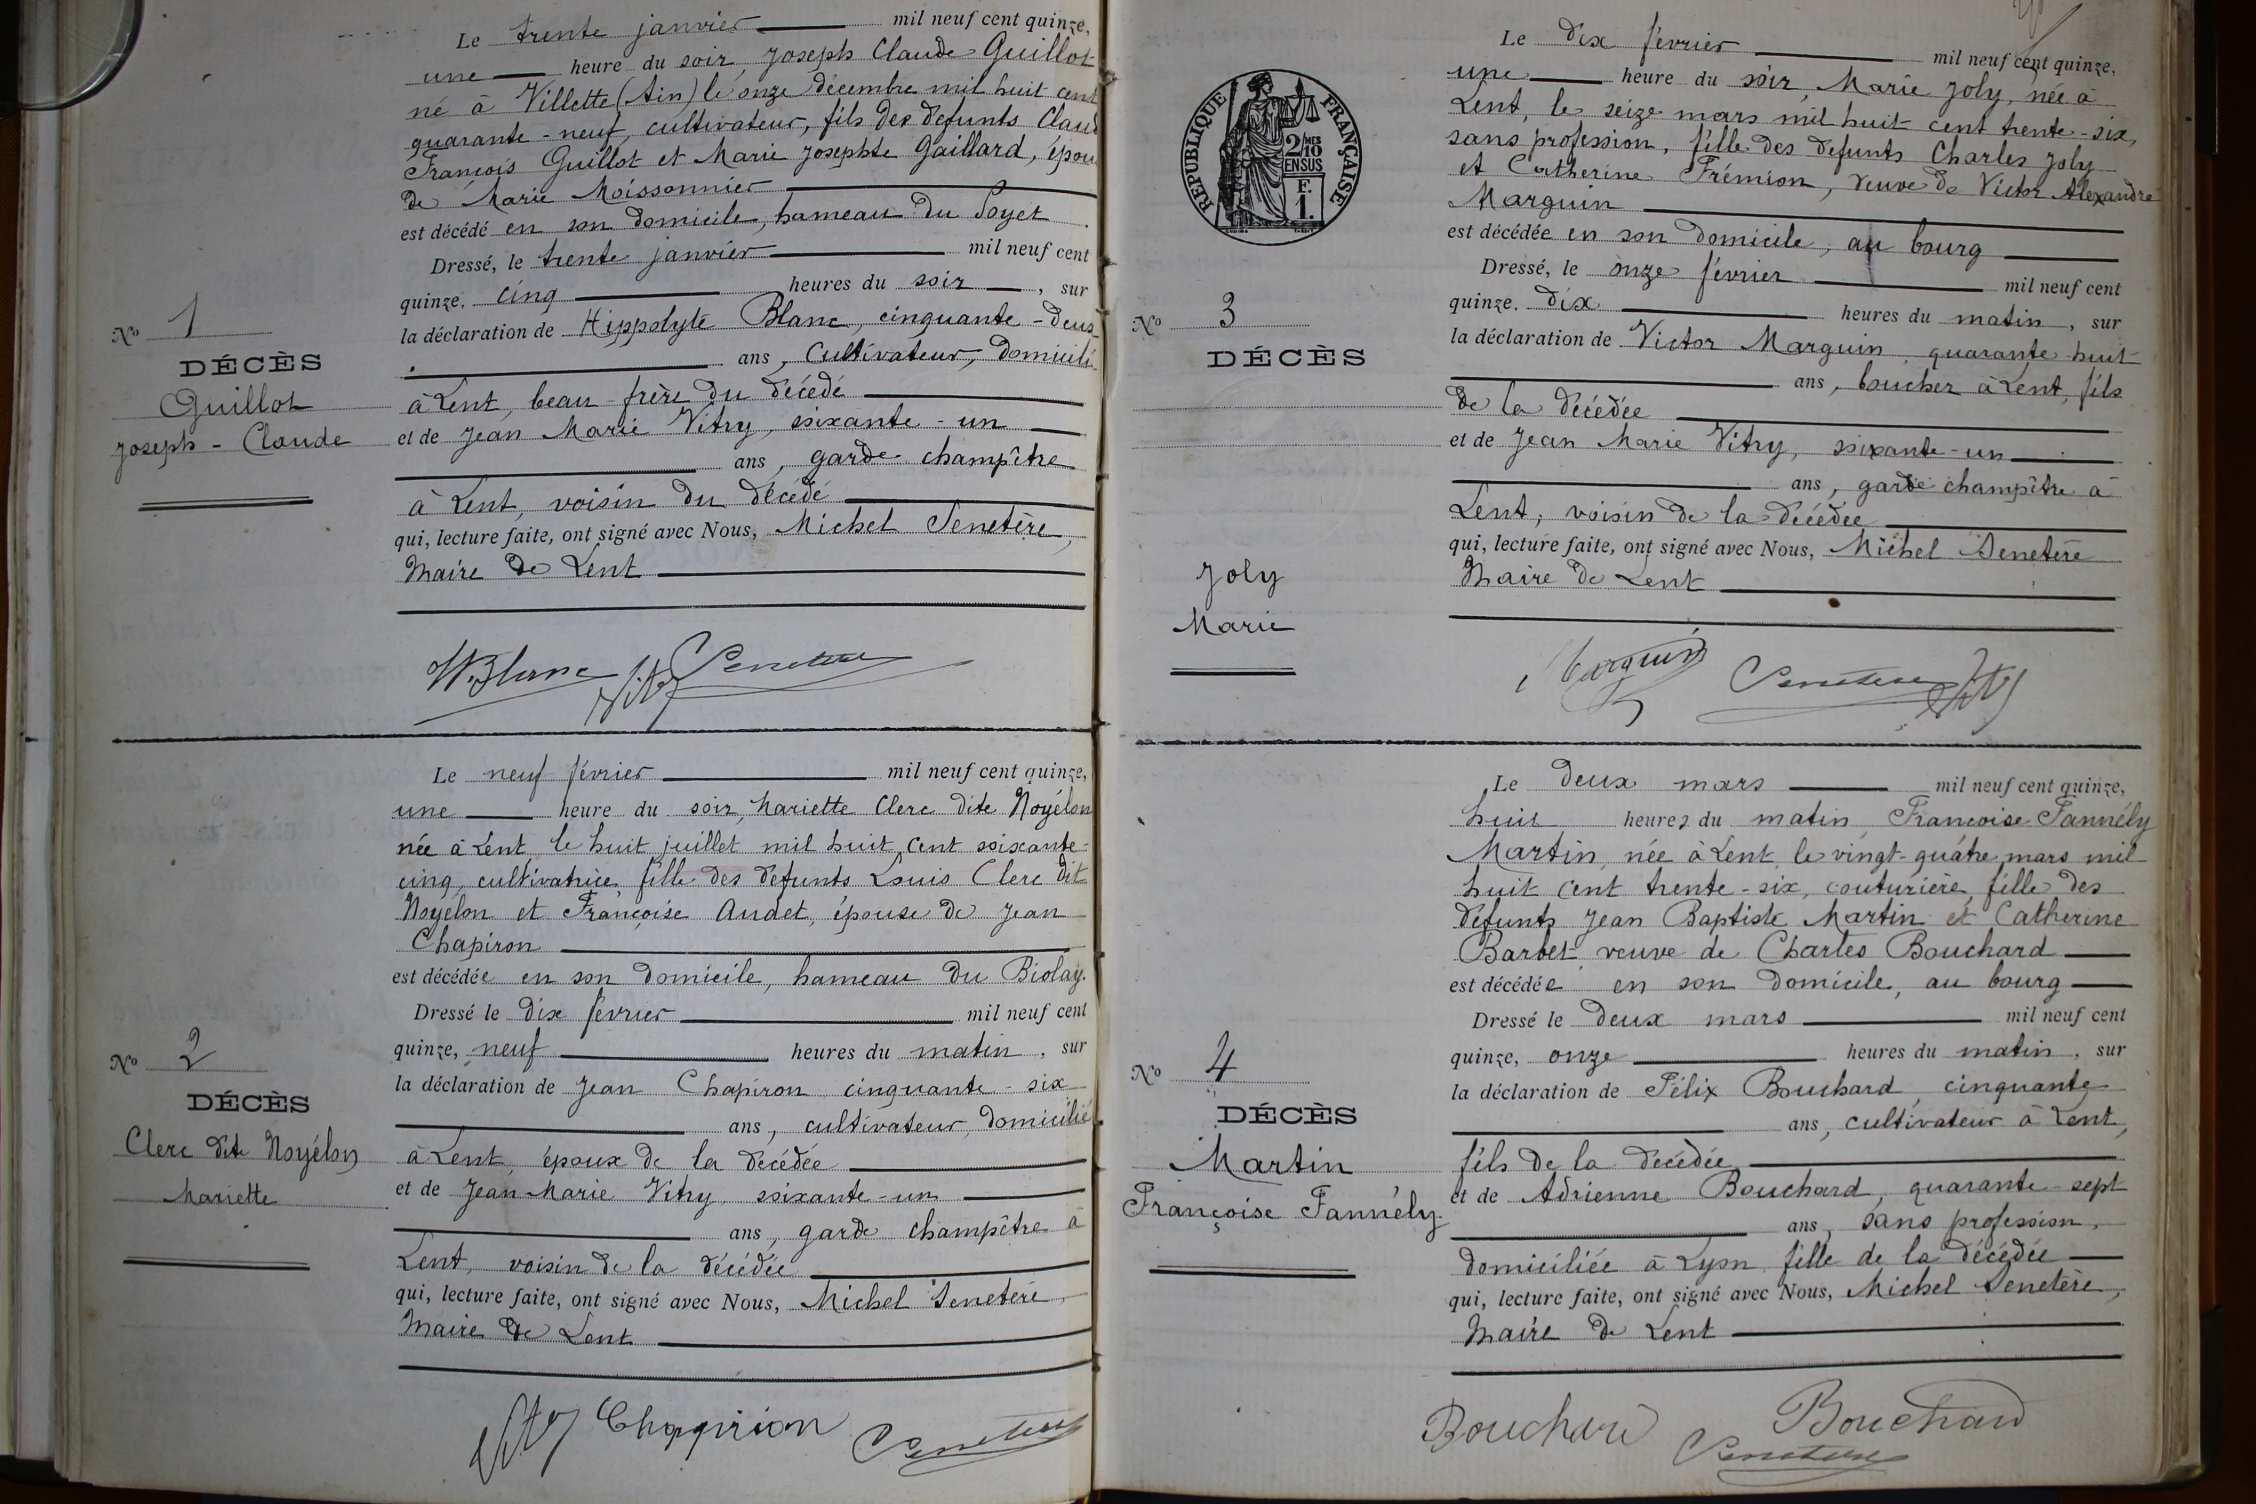 Le trente janvier mil neuf cent quinze,
une heure du soir, Joseph Claude Guillot
né à Villette (Ain) le onze décembre mil huit cent
quarante-neuf, cultivateur, fils des défunts Claud
François Guillot et Marie Josephte Gaillard, épou
de Marie Moissonnier
est décédé en son domicile, hameau du Soyet
Dressé, le trente janvier mil neuf cent
quinze, cinq heures du soir, sur
la déclaration de Hippolyte Blanc, cinquante-deux
ans, cultivateur, domicili
à Lent, beau-frère du décédé
et de Jean Marie Vitry, soixante-un
ans, garde champêtre
à Lent, voisin du décédé
qui, lecture faite, ont signé avec Nous, Michel Senetère,
Maire de Lent
No 1
DÉCÈS
Guillot
Joseph-Claude
H. Blanc Vitry Senetere
Le neuf février mil neuf cent quinze,
une heure du soir, Mariette Clerc dite Noyélon
née à Lent le huit juillet mil huit cent soixante-
cinq, cultivatrice, fille des défunts Louis Clerc dit
Noyélon et Françoise Audet, épouse de Jean
Chapiron
est décédée en son domicile, hameau du Biolay.
Dressé le dix février mil neuf cent
quinze, neuf heures du matin, sur
la déclaration de Jean Chapiron cinquante-six
ans, cultivateur, domicilié
à Lent, époux de la décédée
et de Jean Marie Vitry, soixante-un
ans, garde champêtre à
Lent, voisin de la décédée
qui, lecture faite, ont signé avec Nous, Michel Senetère,
Maire de Lent
No 2
DÉCÈS
Clerc dite Noyélon
Mariette
Vitry Chapirion Senetere
RÉPUBLIQUE FRANÇAISE
2/10 MES
EN SUS
F.
1.
Le dix février mil neuf cent quinze,
une heure du soir, Marie Joly, née à
Lent, le seize mars mil huit cent trente-six,
sans profession, fille des défunts Charles Joly
et Catherine Frémion, veuve de Victor Alexandre
Marguin
est décédée en son domicile, au bourg
Dressé, le onze février mil neuf cent
quinze, dix heures du matin, sur
la déclaration de Victor Marguin, quarante-huit
ans, boucher à Lent, fils
de la décédée
et de Jean Marie Vitry, soixante-un
ans, garde champêtre à
Lent, voisin de la décédée
qui, lecture faite, ont signé avec Nous, Michel Senetère
Maire de Lent
No 3
DÉCÈS
Joly
Marie
Marguin Senetere Vitry
Le deux mars mil neuf cent quinze,
huit heures du matin, Françoise Fannély
Martin, née à Lent le vingt-quatre mars mil
huit cent trente-six, couturière, fille des
défunts Jean Baptiste Martin et Catherine
Barbet, veuve de Charles Bouchard
est décédée en son domicile, au bourg
Dressé le deux mars mil neuf cent
quinze, onze heures du matin, sur
la déclaration de Félix Bouchard, cinquante
ans, cultivateur à Lent,
fils de la décédée
et de Adrienne Bouchard, quarante-sept
ans, sans profession,
domiciliée à Lyon, fille de la décédée
qui, lecture faite, ont signé avec Nous, Michel Senetère,
Maire de Lent
No 4
DÉCÈS
Martin
Françoise Fannély
Bouchard Bouchard
Senetere